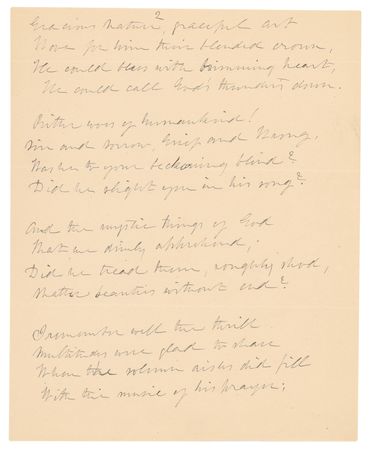 Gracious nature?, graceful art
Wove for him their blended crown,
He could bless with brimming heart,
He could call God's thunders down.
Bitter woes of humankind!
Sin and sorrow, Grief and Wrong,
Was he to your beckoning blind?
Did he slight you in his song?
And the mystic things of God
That we dimly apprehend,
Did he tread them, roughly shod,
Shatter beauties without end?
I remember well the thrill
Multitudes were glad to share
When the solemn aisles did fill
With the music of his prayer;